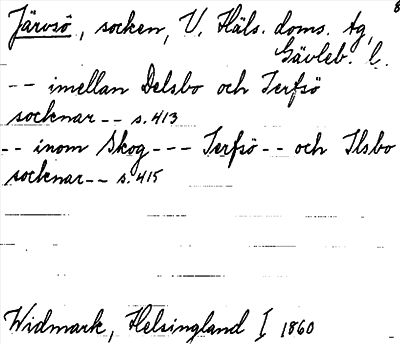 Järvsö, socken, V. Häls. doms. tg,
Gävleb. l.
-- imellan Delsbo och Jerfsö
socknar -- s. 413
-- inom Skog --- Jerfsö -- och Ilsbo
socknar -- s. 415
Widmark, Helsingland I 1860